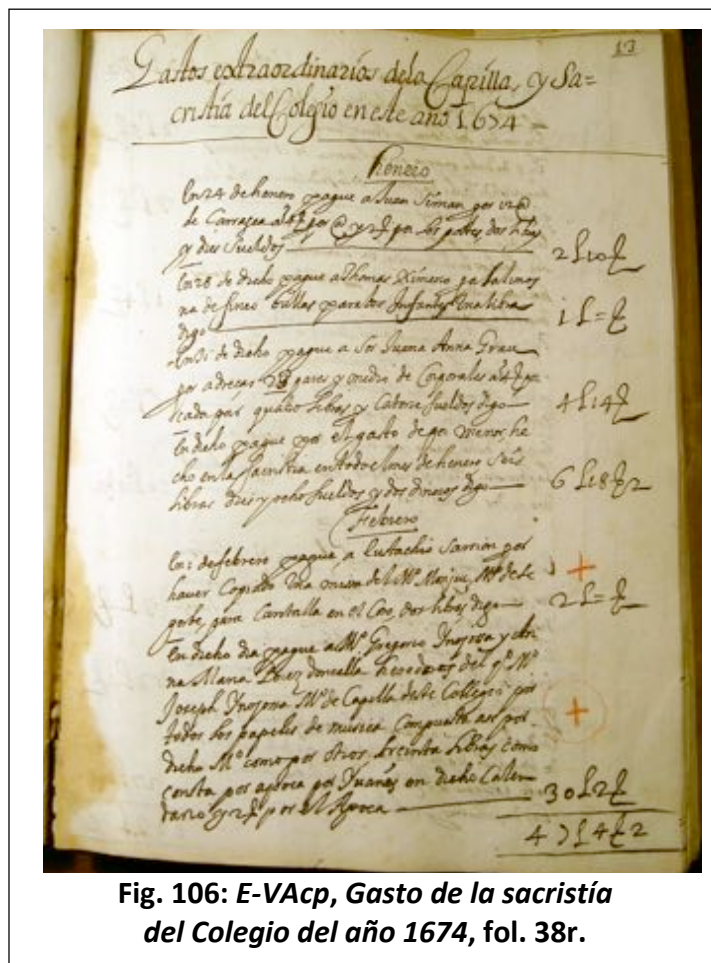 13
Gastos extraordinarios dela Capilla, y Sa=
cristia del Colegio en este año 1674
henero
En 24 de henero pague a Juan Siman por 12@
de Carrasca por @ y 2 por los portes, dos libras
y diez sueldos 2 L 10
En 28 de dicho pague a Thomas Ximeno por la limos
na de sinco bullas para los Infantes una libra
digo 1 L =
En 31 de dicho pague a Sor Juana Anna Grau
por adreçar pares y medio de Corporales a 4 por
cada par quatro libras y Catorse sueldos digo 4 L 14
En dicho pague por el gasto de por menor he
cho en la sacristia en todo el mes de henero seis
libras dies y ocho sueldos y dos dineros digo 6 L 18 2
Febrero
En 1 de febrero pague a Eustachio Sarrion por
haver Copiado una missa del Mº
para Cantalla en el Coro dos libras digo 2 L =
En dicho dia pague a Mº Gregorio Ynojosa y An
na Maria donzella herederos del qº Mº
Joseph Ynojosa Mº de Capilla deste Collegio por
todos los papeles de musica Compuestos asi por
dicho Mº como por otros, treinta libras como
consta por apoca por Juanes en dicho Calen
dario y 2 por el Apoca 30 L 2
47 L 4 2
Fig. 106: E-VAcp, Gasto de la sacristía
del Colegio del año 1674, fol. 38r.